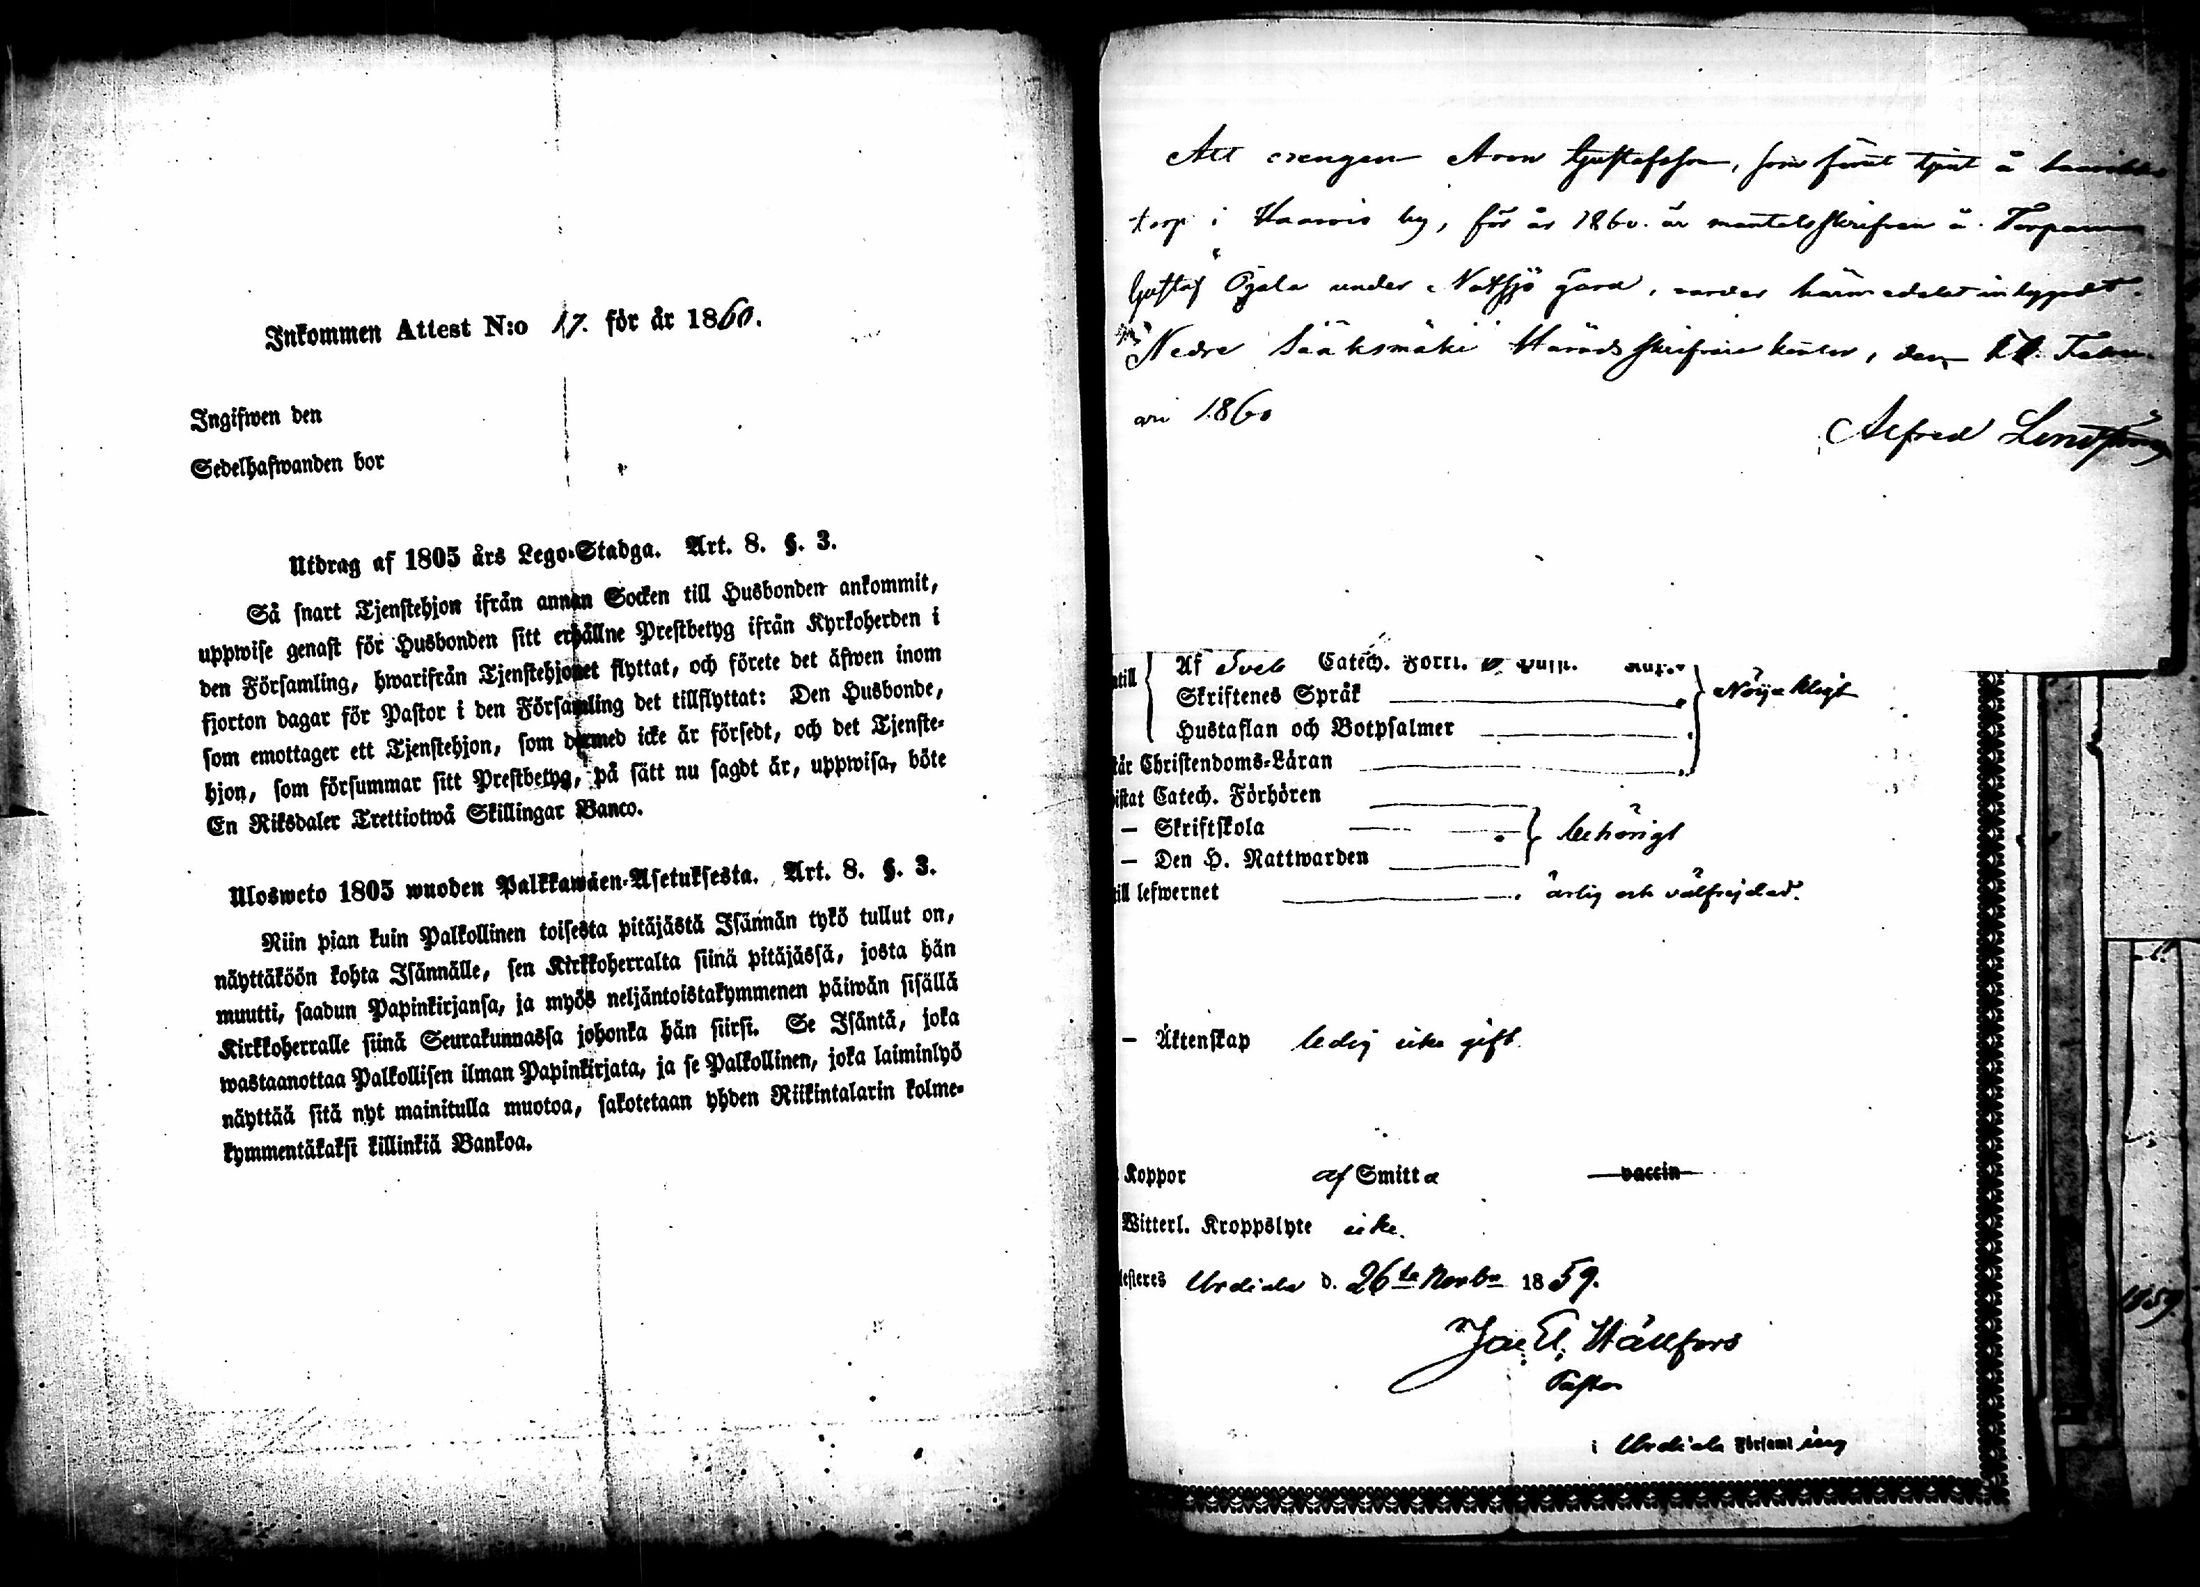 Inkommen Attest N:o 17. för år 1860.
Ingifwen den
Sedelhafwanden bor
Utdrag af 1805 års Lego-Stadga. Art. 8. §. 3.
Så snart Tjenstehjon ifrån annan Socken till Husbonden ankommit,
uppwise genast för Husbonden sitt erhållne Prestbetyg ifrån Kyrkoherden i
den Församling, hwarifrån Tjenstehjonet flyttat, och förete det äfwen inom
fjorton dagar för Pastor i den Församling det tillflyttat: Den Husbonde,
som emottager ett Tjenstehjon, som dermed icke är försedt, och det Tjenste-
hjon, som försummar sitt Prestbetyg, på sätt nu sagdt är, uppwisa, böte
En Riksdaler Trettiotwå Skillingar Banco.
Ulosweto 1805 wuoden Palkkawäen-Asetuksesta. Art. 8. §. 3.
Niin pian kuin Palkollinen toisesta pitäjästä Isännän tykö tullut on,
näyttäköön kohta Isännälle, sen Kirkkoherralta siinä pitäjässä, josta hän
muutti, saadun Papinkirjansa, ja myös neljäntoistakymmenen päiwän sisällä
Kirkkoherralle siinä Seurakunnassa johonka hän siirsi. Se Isäntä, joka
wastaanottaa Palkollisen ilman Papinkirjata, ja se Palkollinen, joka laiminlyö
näyttää sitä nyt mainitulla muotoa, sakotetaan yhden Riikintalarin kolme-
kymmentäkaksi killinkiä Bankoa.
Att drengen Aron Gustafsson, som förut tjent å
torp i Haavis by, för år 1860 är mantalsskrifven å Torparen
Gustaf Ojala under Notsjö gård, varder härmedelst intygadt.
Nedre Sääksmäki Häradsskrifvare kontor, den Febru-
ari 1860
Alfred
Af Sveb Catech. Förkl.
Skriftenes Språk
Hustaflan och Botpsalmer
Nöjaktligt
Christendoms-Läran
Catech. Förhören
— Skriftskola
— Den H. Nattwarden
behörigt
lefwernet ärlig och välfrejdad.
— Äktenskap ledig icke gift
Koppor af Smitta vaccin
Witterl. Kroppslyte icke.
Urdiala d. 26te Novbr 1859.
Jac. El. Hällfors
Pastor
i Urdiala Församling
1859